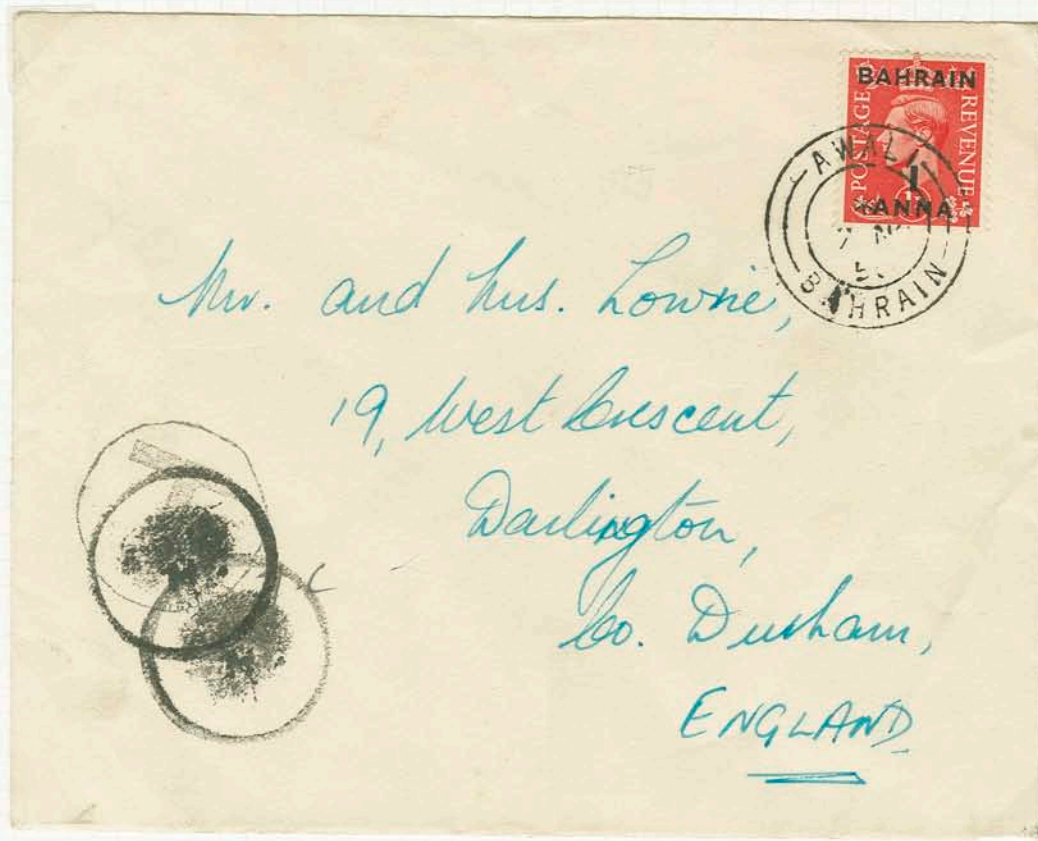 BAHRAIN
POSTAGE REVENUE
1
ANNA
AWALI
7
BAHRAIN
Mr. and Mrs. Lowrie,
19, West Crescent,
Darlington,
Co. Durham,
ENGLAND